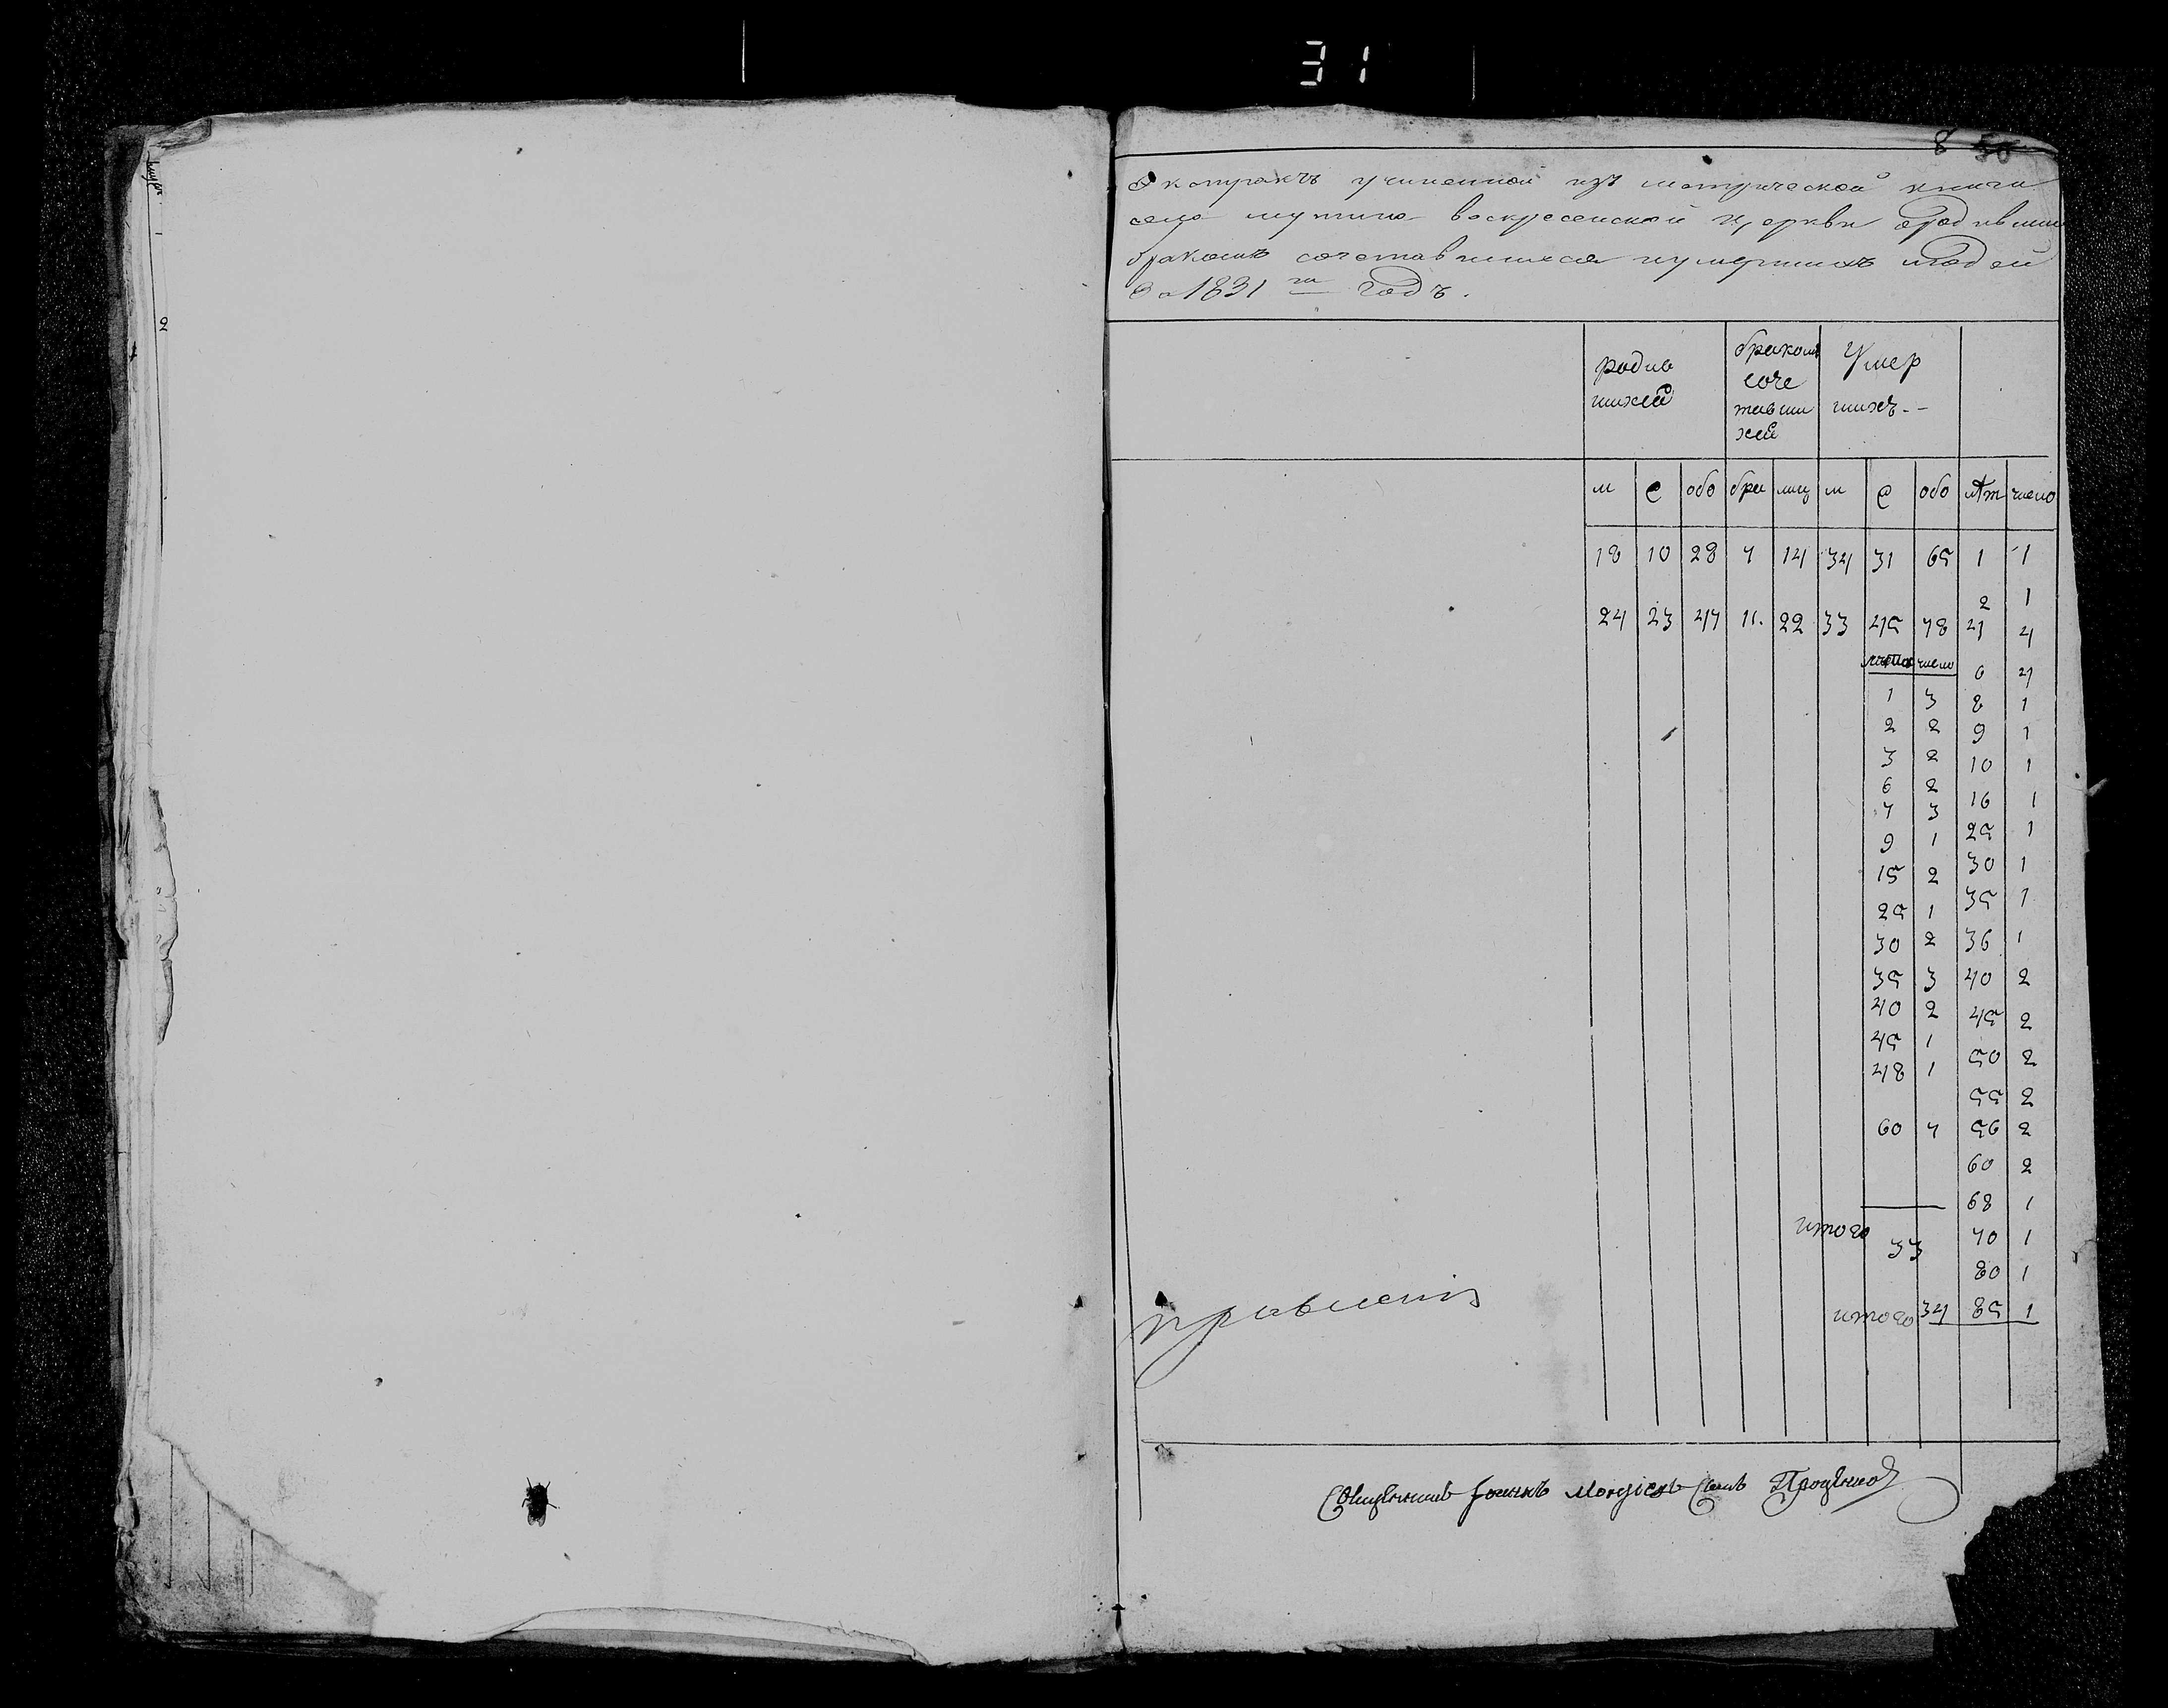 31
8 50
Экстрактъ учиненной изъ метрической книги
села Мутина воскресенской церкви о родивши
бракомъ сочетавшихся и умершихъ людей
За 1831 го годъ.
родив шихся | бракомъ соче тавши хся | Умер шихъ
м | ж | обо | бра | лиц | м | ж | обо | лѣт | число
18 | 10 | 28 | 7 | 14 | 34 | 31 | 65 | 1 | 1
2 | 1
24 | 23 | 47 | 11. | 22 | 33 | 45 | 78 | 4 | 4
лѣта | число | 6 | 4
1 | 3 | 8 | 1
2 | 2 | 9 | 1
3 | 2 | 10 | 1
6 | 2 | 16 | 1
7 | 3 | 25 | 1
9 | 1 | 30 | 1
15 | 2 | 35 | 1
25 | 1 | 36 | 1
30 | 2 | 40 | 2
35 | 3 | 45 | 2
40 | 2 | 50 | 2
45 | 1 | 55 | 2
48 | 1 | 56 | 2
60 | 7 | 60 | 2
68 | 1
итого 33 | 70 | 1
80 | 1
итого 34 | 85 | 1
правленія
Священникъ Іоаннъ
2